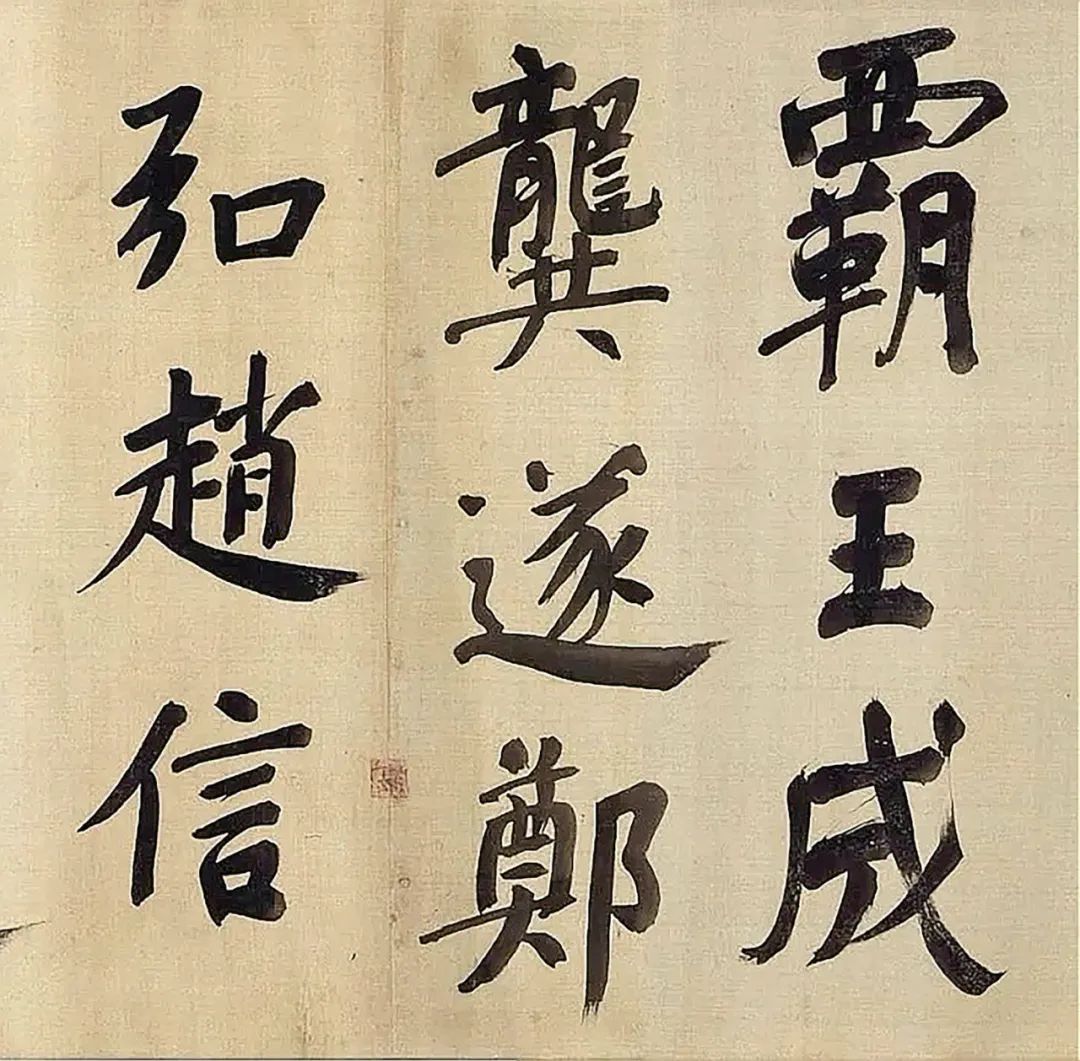 霸王成
龔遂鄭
弘趙信